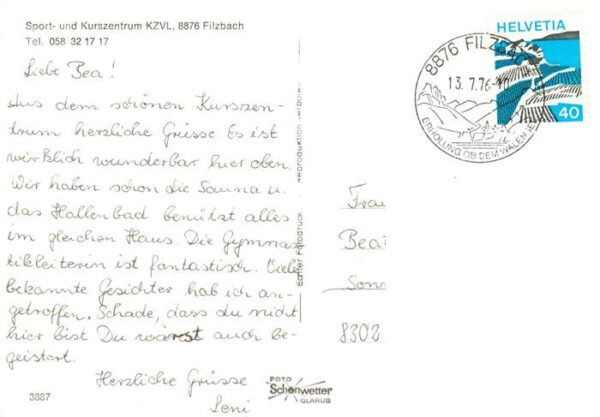 Sport- und Kurszentrum KZVL, 8876 Filzbach
Tel. 058 32 17 17
Liebe Bea!
Aus dem schönen Kurszen-
trum herzliche Grüsse. Es ist
wirklich wunderbar hier oben.
Wir haben schon die Sauna u.
das Hallenbad benützt alles
im gleichen Haus. Die Gymnas-
tikleiterin ist fantastisch. Viele
bekannte Gesichter hab ich an-
getroffen. Schade, dass du nicht
hier bist Du wärest auch be-
geistert.
Herzliche Grüsse
Leni
3887
FOTO
Schönwetter
GLARUS
Echter Fotodruck
Reproduktion verboten
HELVETIA
40
8876 FILZBACH
13.7.76
ERHOLUNG OB DEM WALENSEE
Frau
Beat
Sonn
8302